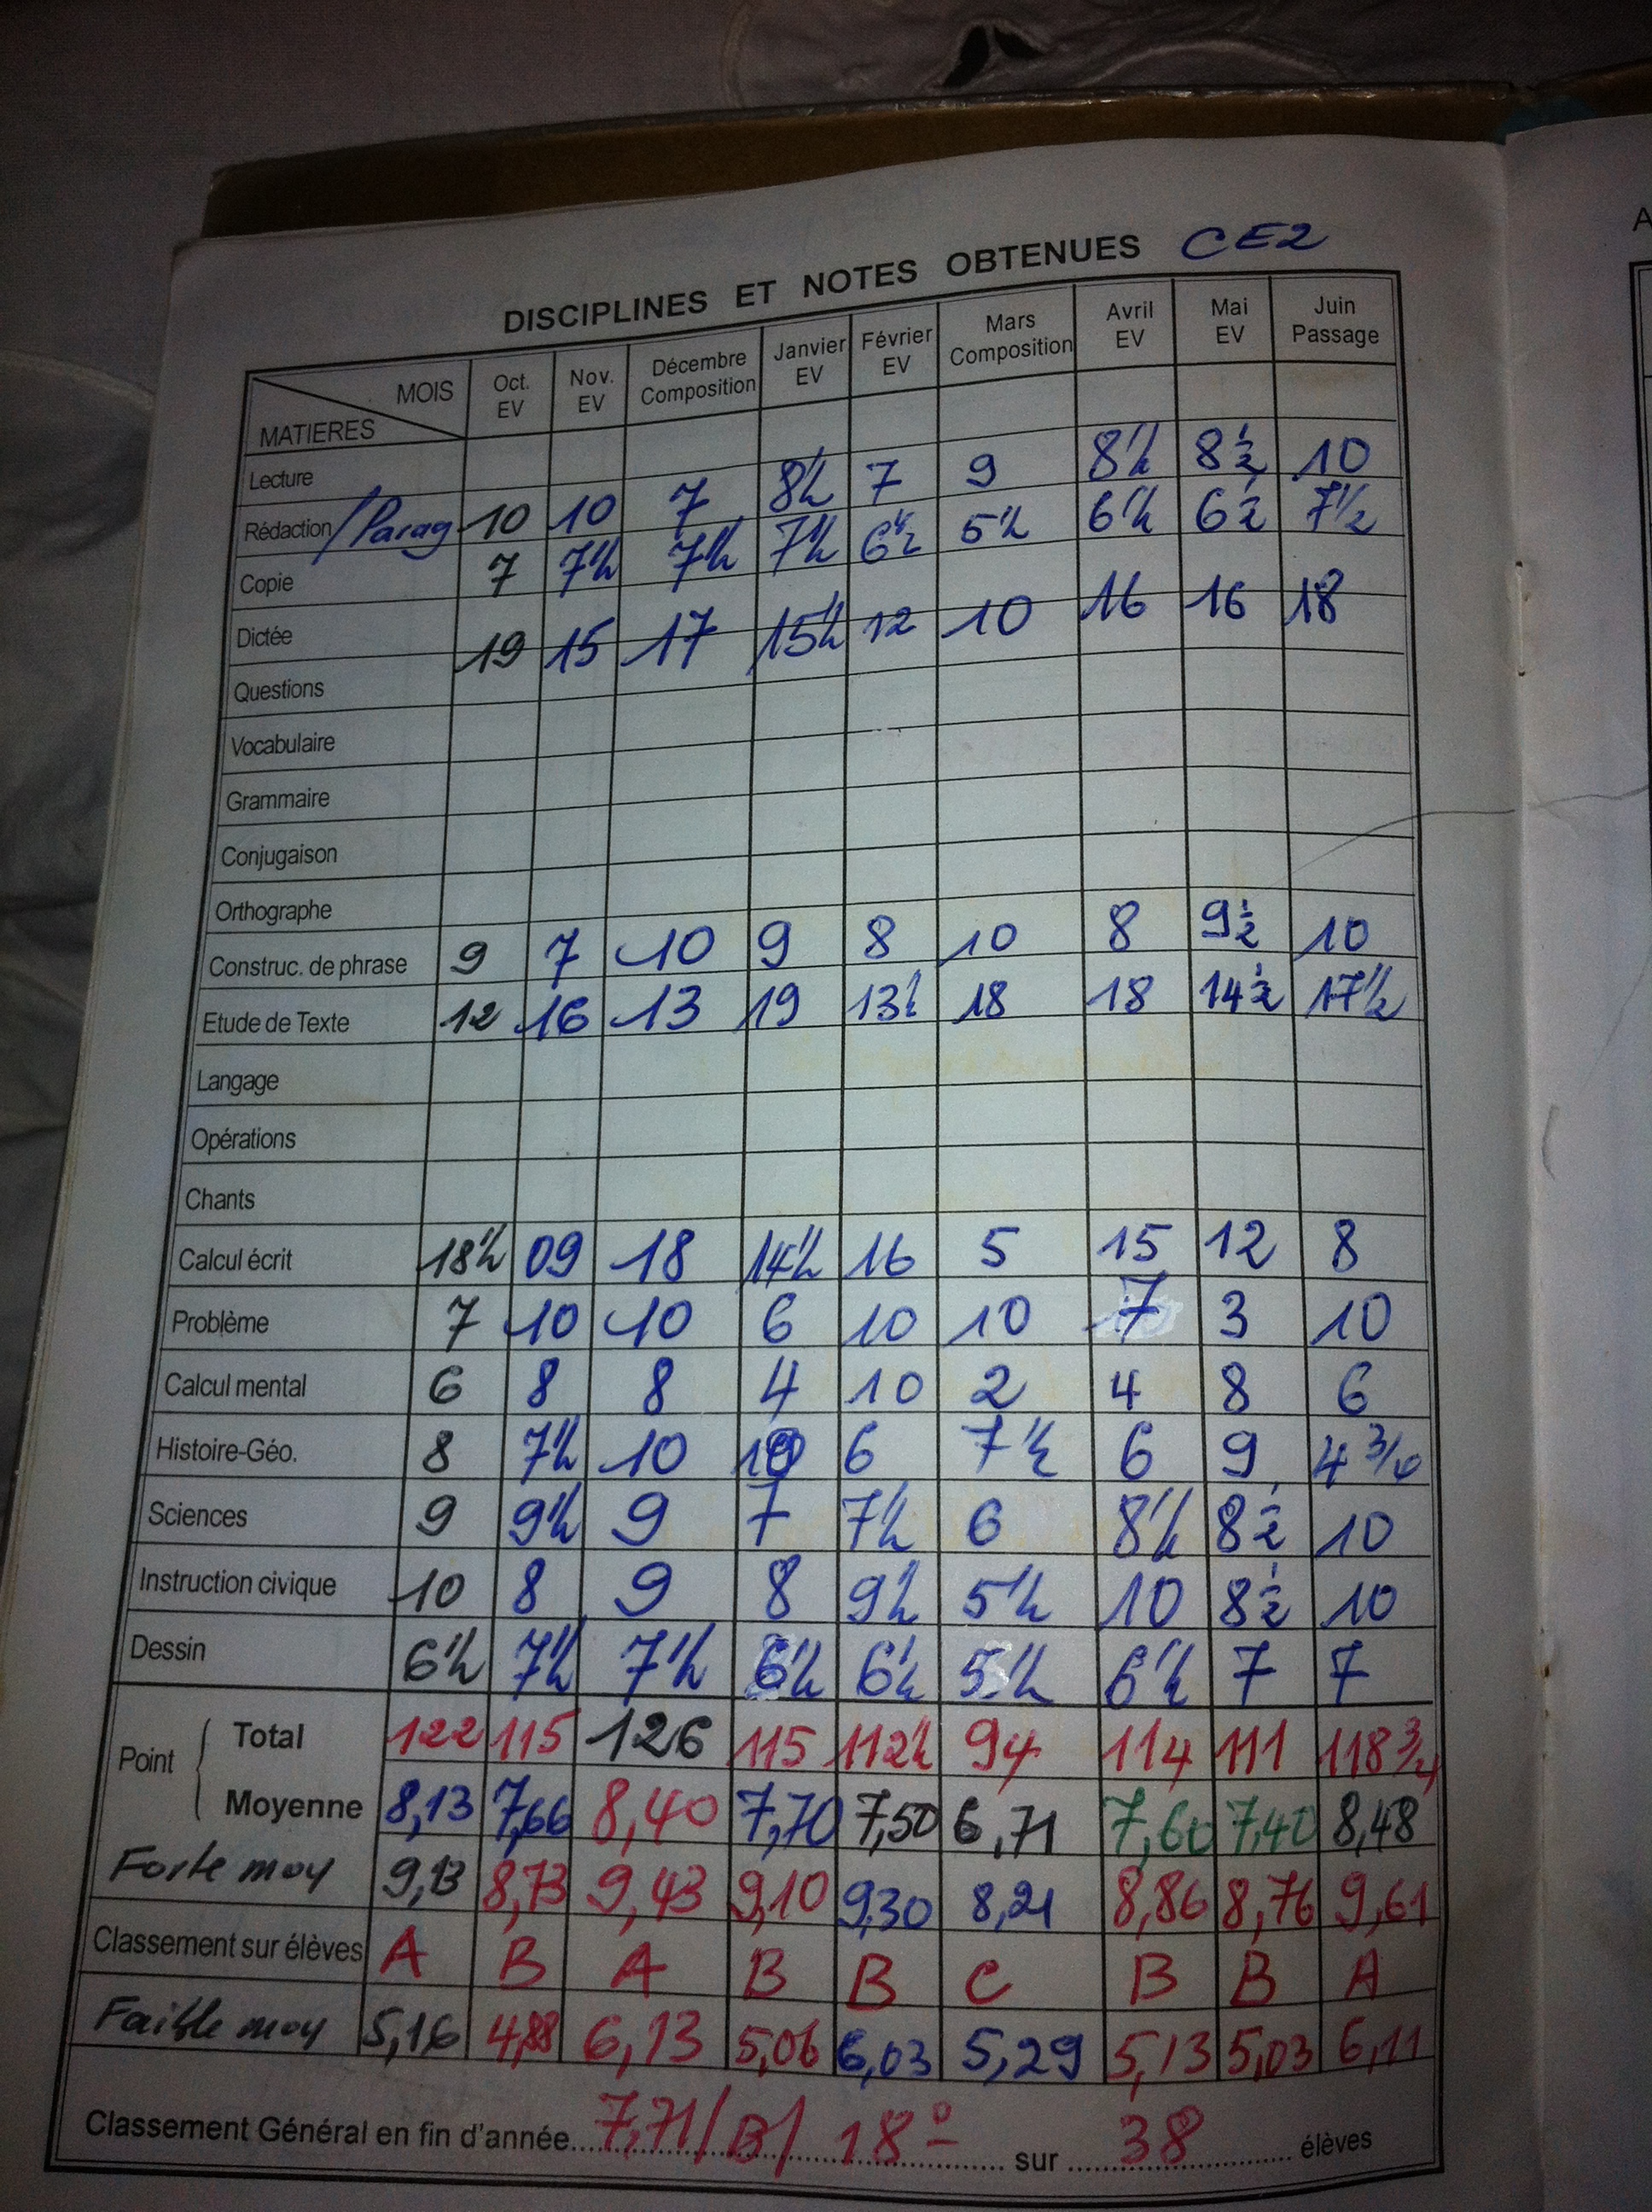 DISCIPLINES ET NOTES OBTENUES CE2
MATIERES MOIS Oct. EV Nov. EV Décembre Composition Janvier EV Février EV Mars Composition Avril EV Mai EV Juin Passage
Lecture
Rédaction /Parag 10 10 7 8 1/2 7 9 8 1/2 8 1/2 10
Copie 7 7 1/2 7 1/2 7 1/2 6 1/2 5 1/2 6 1/2 6 1/2 7 1/2
Dictée 19 15 17 15 1/2 12 10 16 16 18
Questions
Vocabulaire
Grammaire
Conjugaison
Orthographe
Construc. de phrase 9 7 10 9 8 10 8 9 1/2 10
Etude de Texte 12 16 13 19 13 1/2 18 18 14 1/2 17 1/2
Langage
Opérations
Chants
Calcul écrit 18 1/2 09 18 14 1/2 16 5 15 12 8
Problème 7 10 10 6 10 10 7 3 10
Calcul mental 6 8 8 4 10 2 4 8 6
Histoire-Géo. 8 7 1/2 10 10 6 7 1/2 6 9 4 3/4
Sciences 9 9 1/2 9 7 7 1/2 6 8 1/2 8 1/2 10
Instruction civique 10 8 9 8 9 1/2 5 1/2 10 8 1/2 10
Dessin 6 1/2 7 1/2 7 1/2 6 1/2 6 1/2 5 1/2 6 1/2 7 7
Point Total 122 115 126 115 112 1/2 94 114 111 118 3/4
Moyenne 8,13 7,66 8,40 7,70 7,50 6,71 7,60 7,40 8,48
Forte moy 9,13 8,73 9,43 9,10 9,30 8,21 8,86 8,76 9,61
Classement sur élèves A B A B B C B B A
Faible moy 5,16 4,88 6,13 5,06 6,03 5,29 5,13 5,03 6,11
Classement Général en fin d'année 7,71/B/ 18° sur 38 élèves